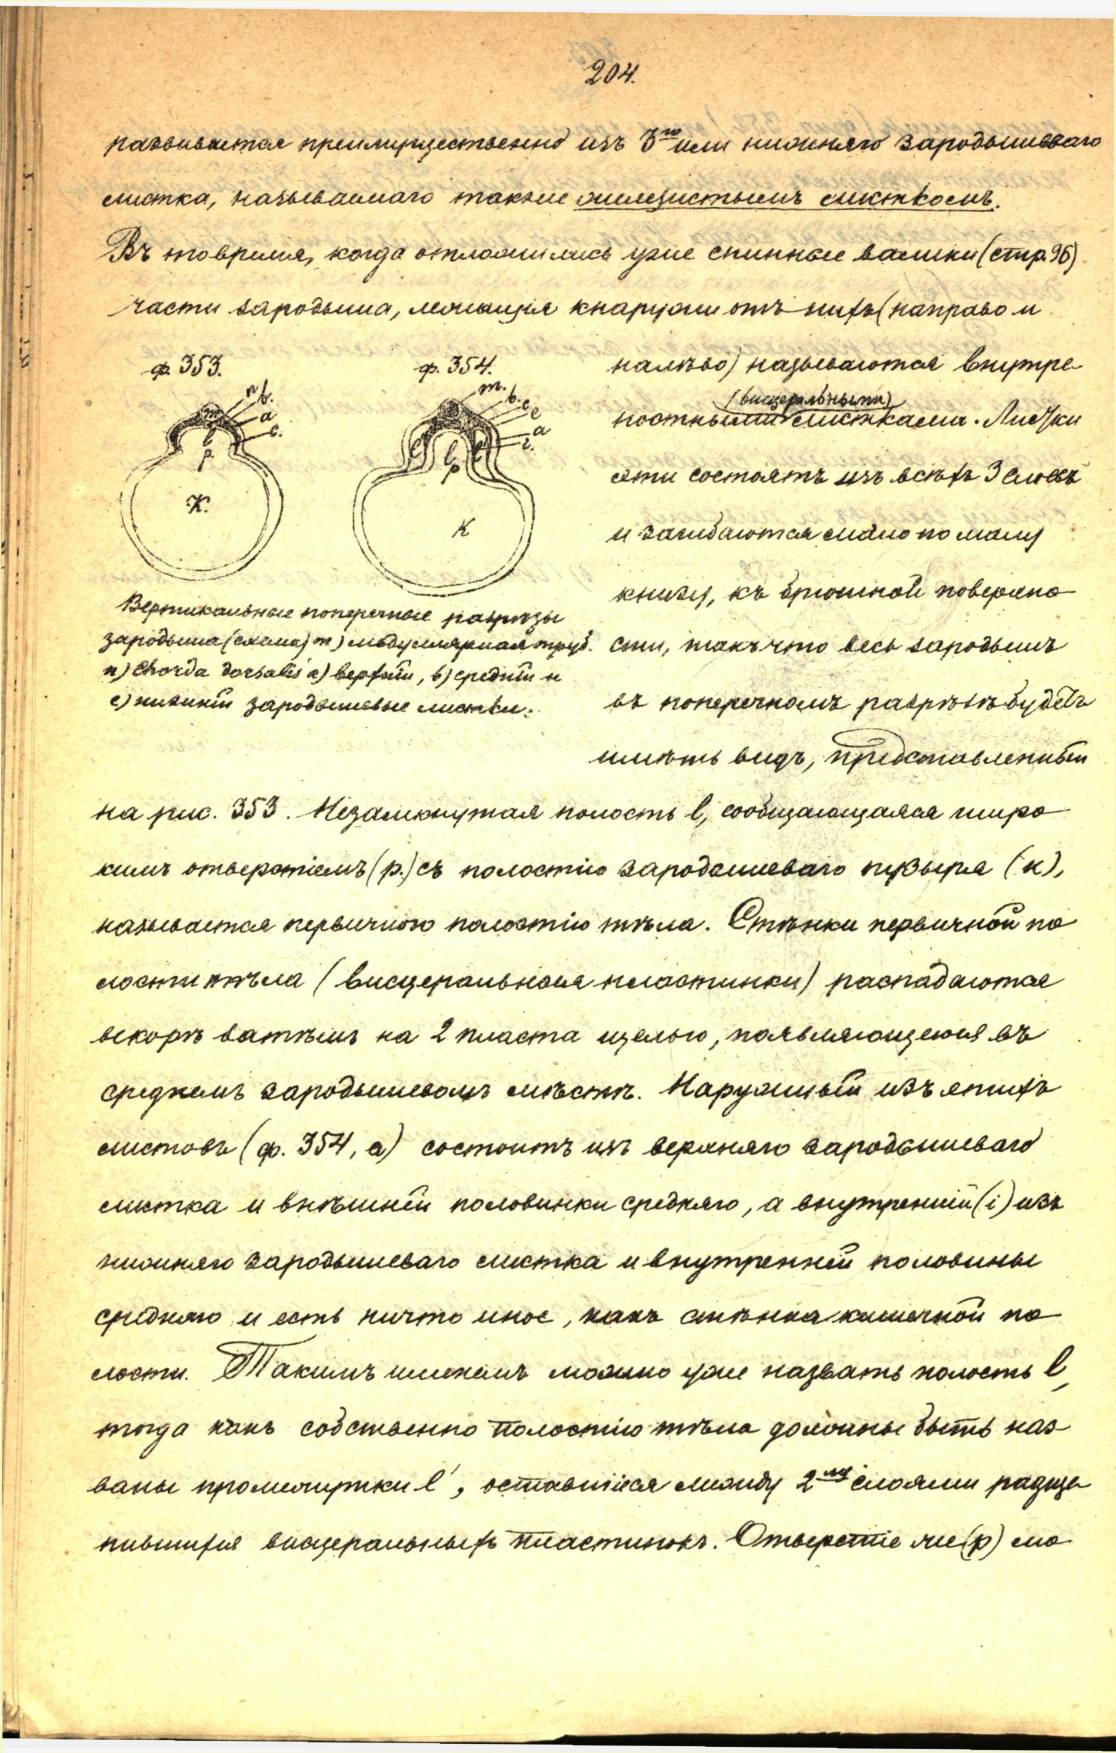 204.
развивается преимущественно изъ 3го или нижняго зародышеваго
листка, называемаго также железистымъ листкомъ.
Въ то время, когда отложились уже спинные валики (стр. 96)
части зародыша, лежащія кнаружи отъ нихъ (направо и
ф. 353.
ф. 354.
n b.
a
c.
l
p.
К.
m.
b.
c
e
a
i.
l
p
К
Вертикальные поперечные разрѣзы
зародыша (схема) m) медуллярная труб.
n) Chorda dorsalis a) верхній, b) средній и
c) нижній зародышевые листки.
налѣво) называются внутре-
(висцеральными)
ностными листками. Листки
эти состоятъ изъ всѣхъ 3 слоевъ
и загибаются мало по малу
книзу, къ брюшной поверхно-
сти, такъ что весь зародышъ
въ поперечномъ разрѣзѣ будетъ
имѣть видъ, представленный
на рис. 353. Незамкнутая полость l, сообщающаяся широ-
кимъ отверстіемъ (p.) съ полостію зародышеваго пузыря (к),
называется первичною полостію тѣла. Стѣнки первичной по-
лости тѣла (висцеральныя пластинки) распадаются
вскорѣ затѣмъ на 2 пласта щелью, появляющеюся въ
среднемъ зародышевомъ листѣ. Наружный изъ этихъ
листовъ (ф. 354, a) состоитъ изъ верхняго зародышеваго
листка и внѣшней половинки средняго, а внутренній (i) изъ
нижняго зародышеваго листка и внутренней половины
средняго и есть ничто иное, какъ стѣнка кишечной по-
лости. Такимъ именемъ можно уже назвать полость l,
тогда какъ собственно полостію тѣла должны быть наз-
ваны промежутки l', оставшіеся между 2мя слоями расще-
пившихся висцеральныхъ пластинокъ. Отверстіе же (p) мо-